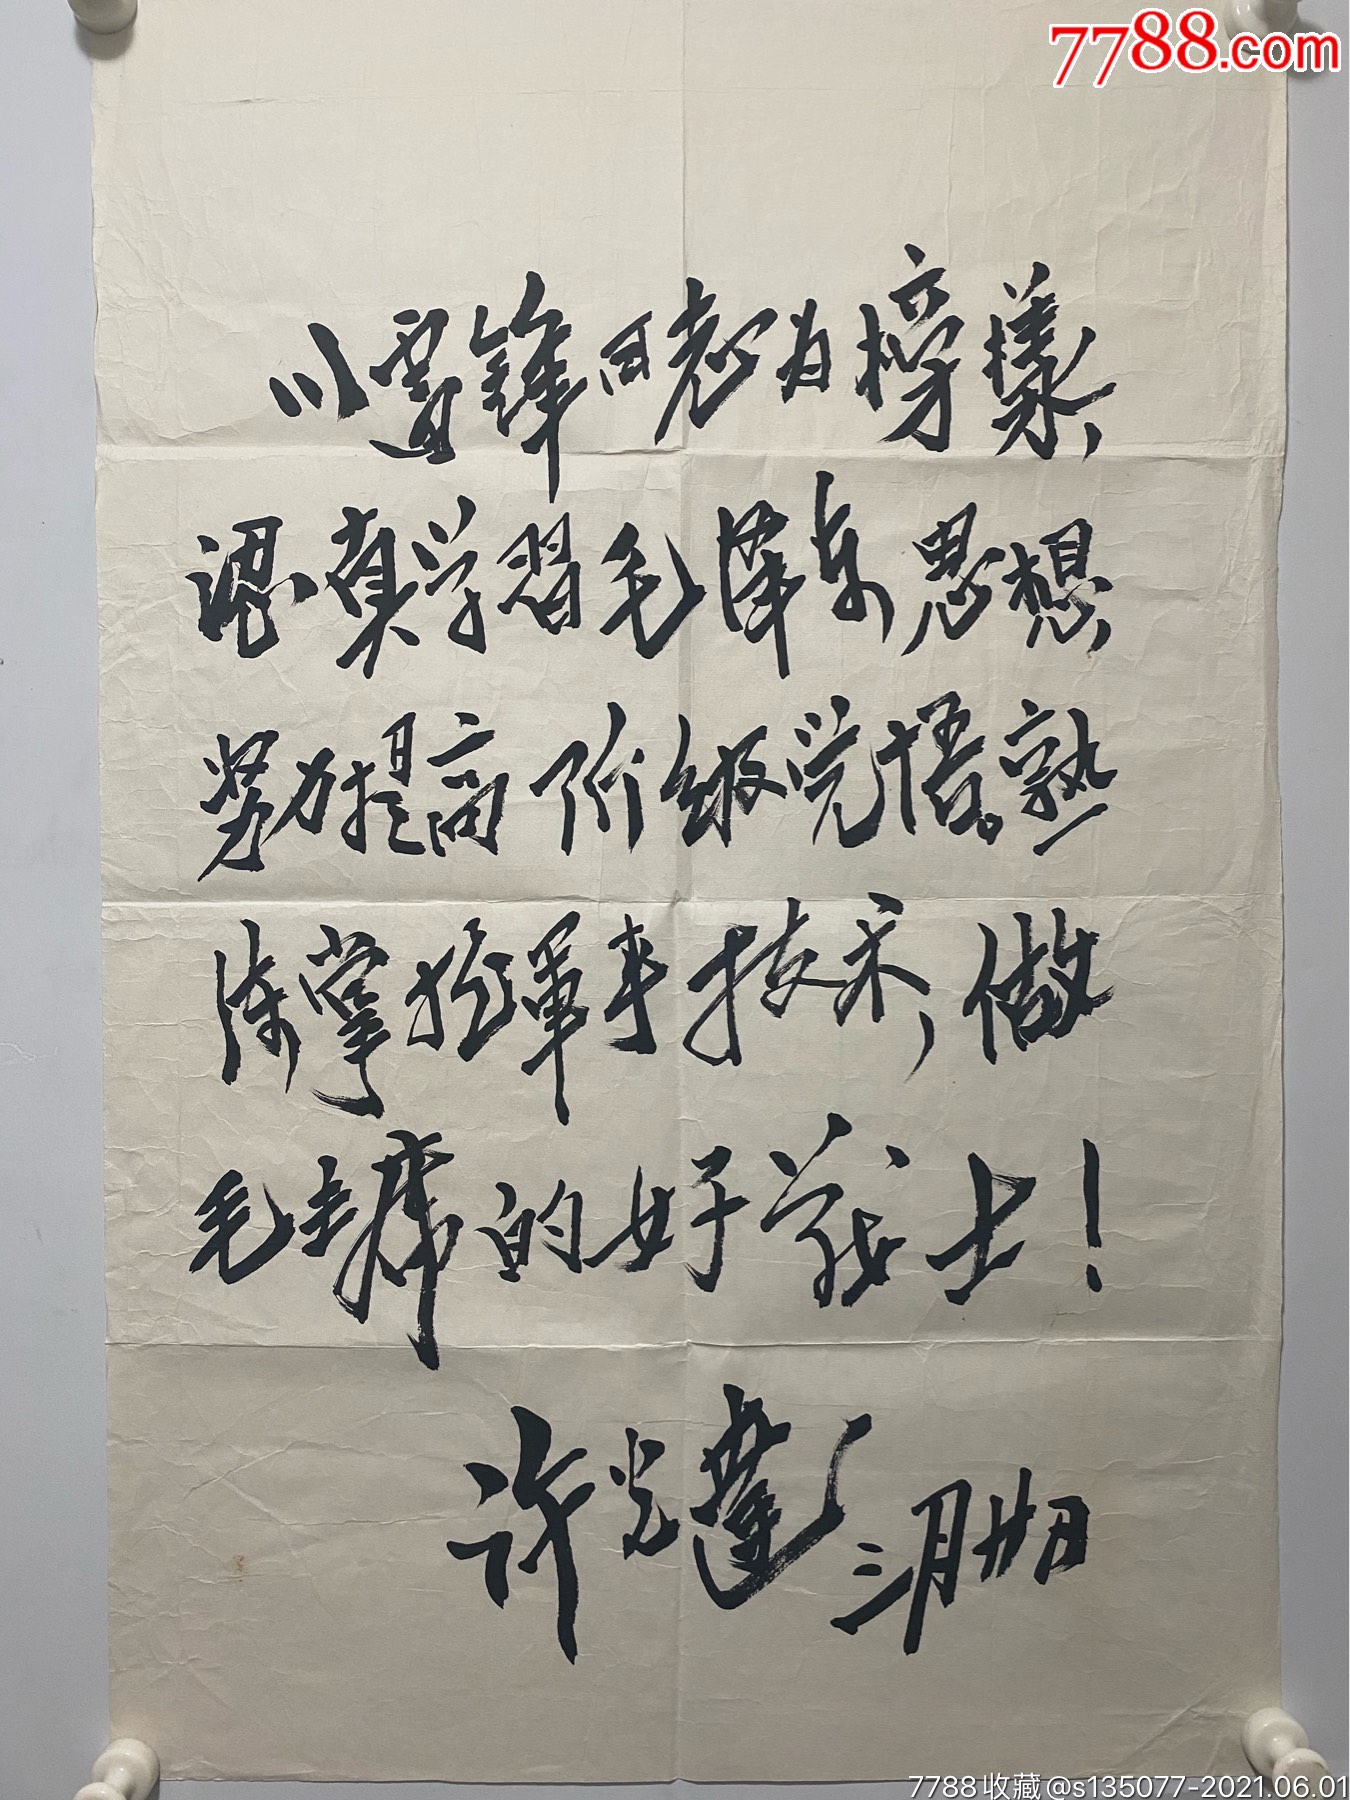 7788.com
以雷锋同志为榜樣，
認真学習毛澤东思想，
努力提高阶级觉悟。熟
练掌握軍事技术，做
毛主席的好战士！
许光達
三月廿日
7788收藏@s135077-2021.06.01